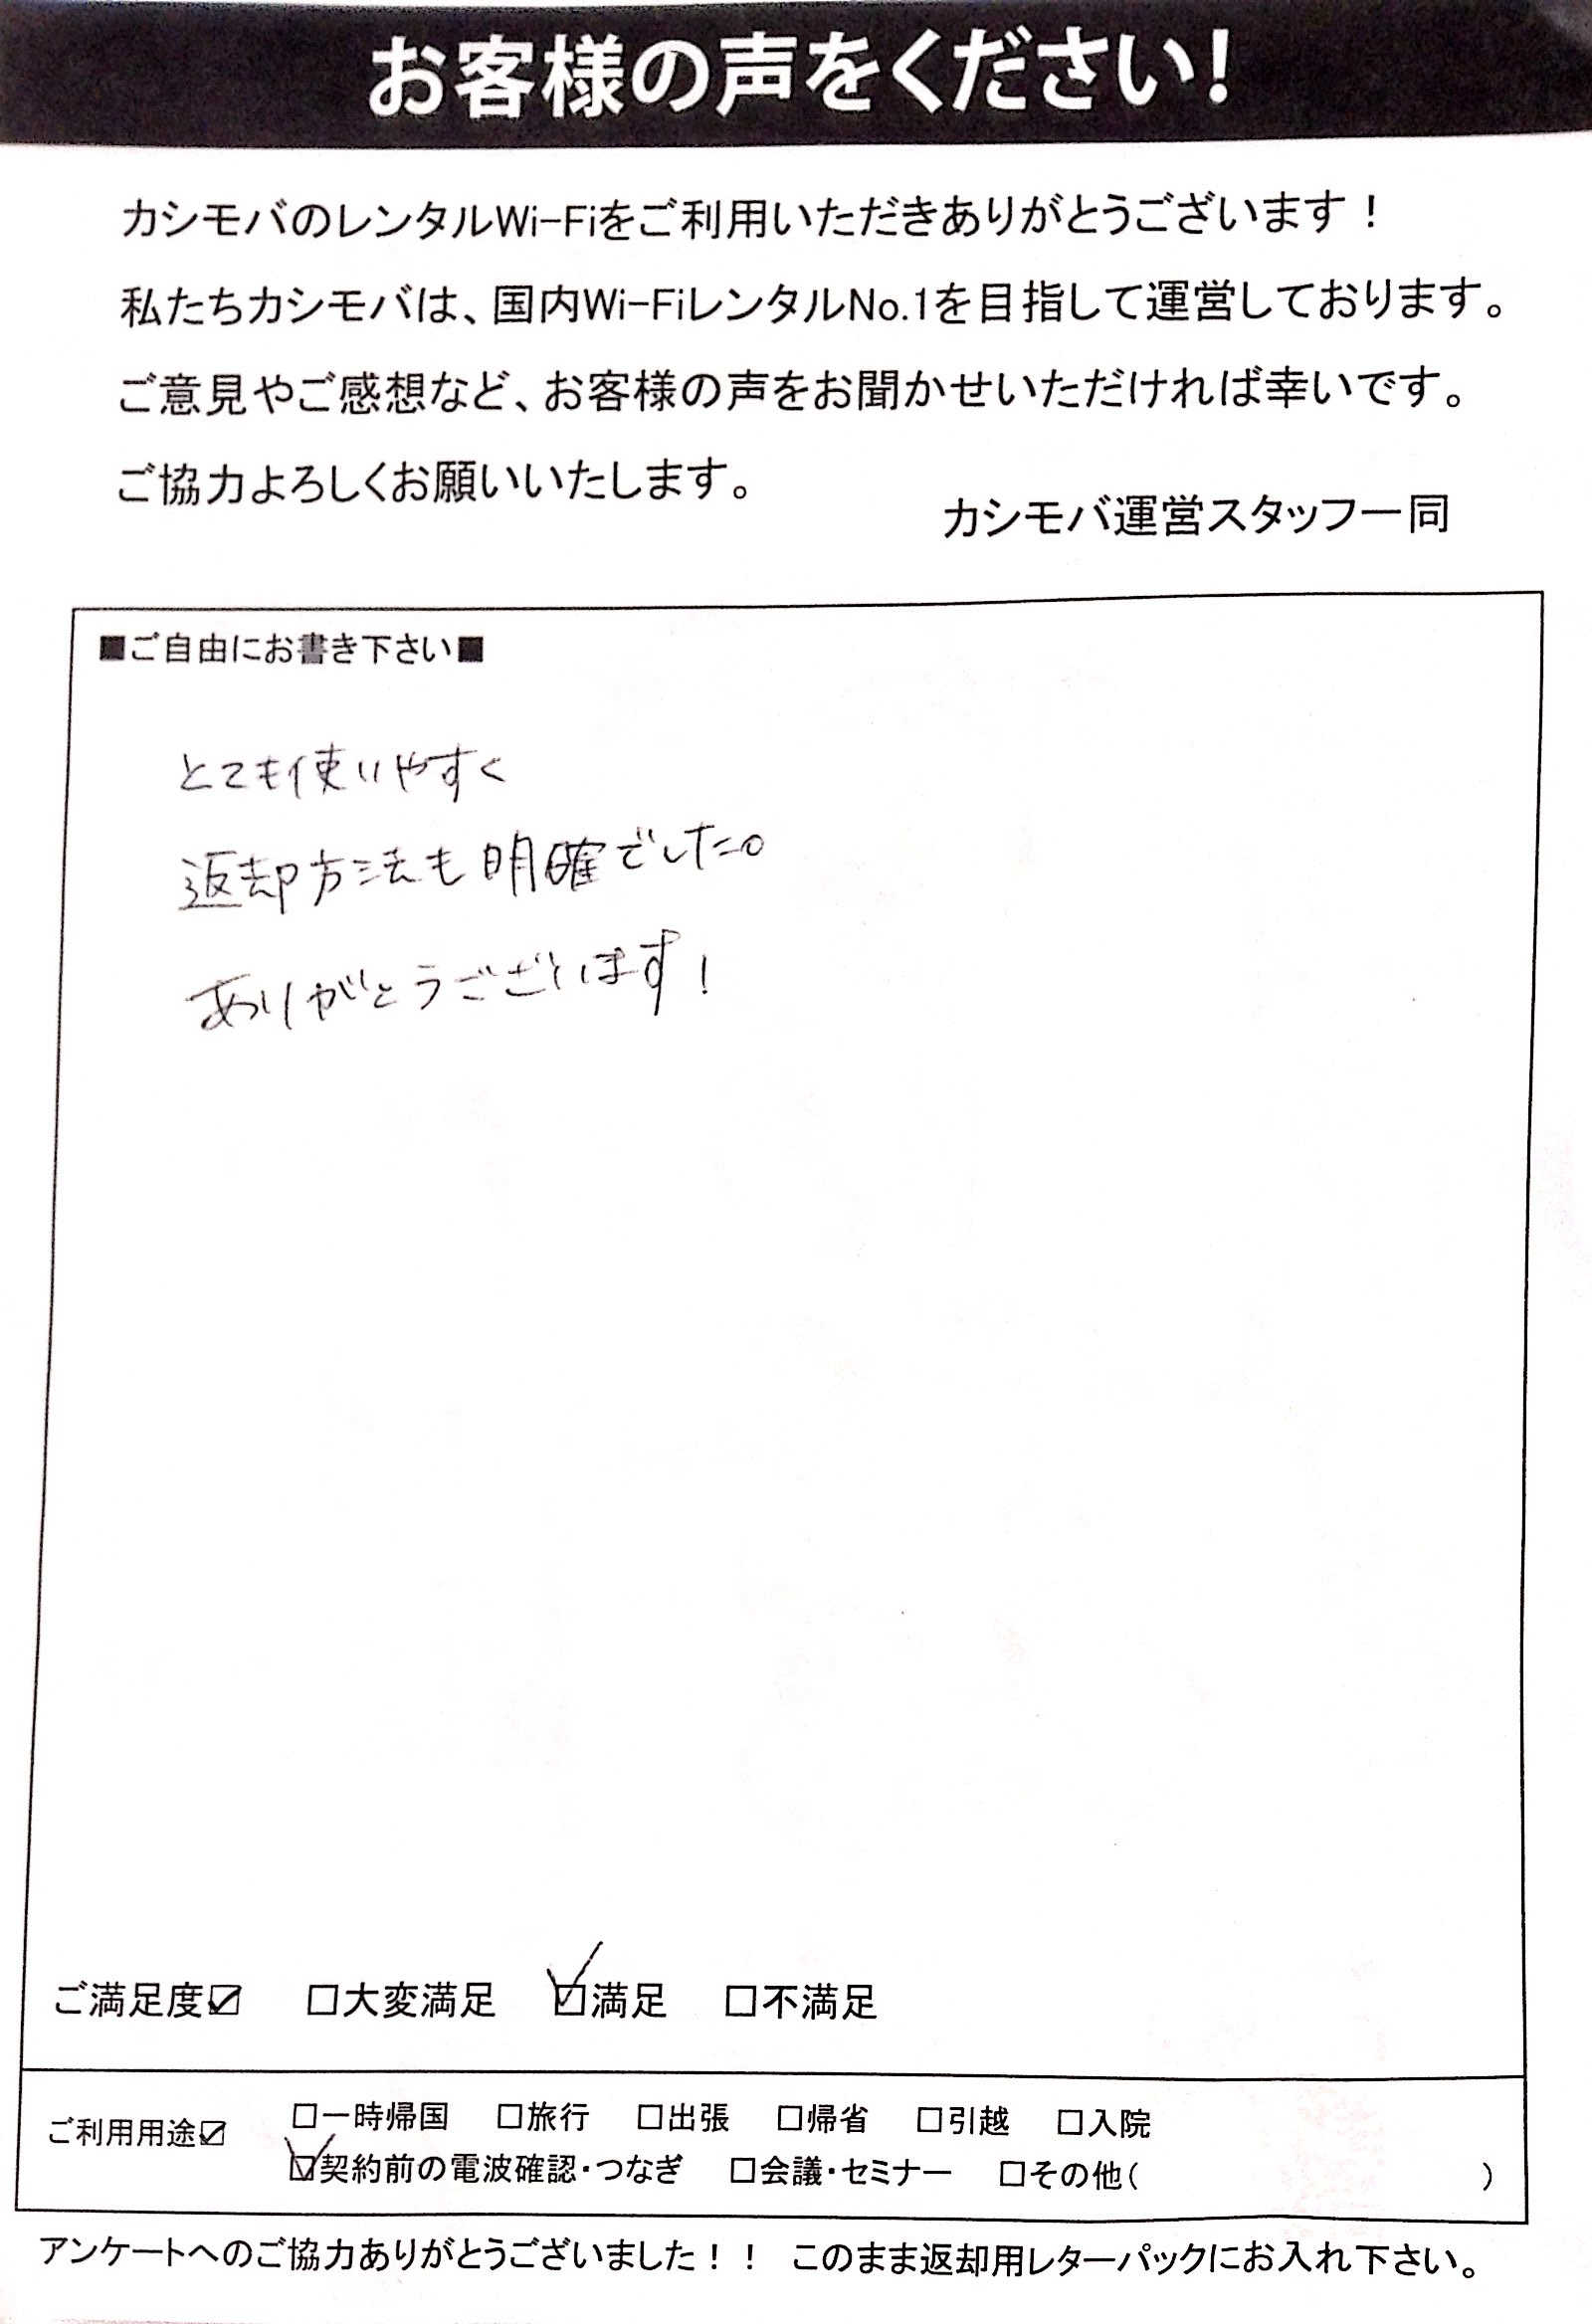 お客様の声をください!
カシモバのレンタルWi-Fiをご利用いただきありがとうございます！
私たちカシモバは、国内Wi-FiレンタルNo.1を目指して運営しております。
ご意見やご感想など、お客様の声をお聞かせいただければ幸いです。
ご協力よろしくお願いいたします。
カシモバ運営スタッフ一同
■ご自由にお書き下さい■
とても使いやすく
返却方法も明確でした。
ありがとうございます！
ご満足度☑ □大変満足 ☑満足 □不満足
ご利用用途☑ □一時帰国 □旅行 □出張 □帰省 □引越 □入院
☑契約前の電波確認・つなぎ □会議・セミナー □その他( )
アンケートへのご協力ありがとうございました！！ このまま返却用レターパックにお入れ下さい。